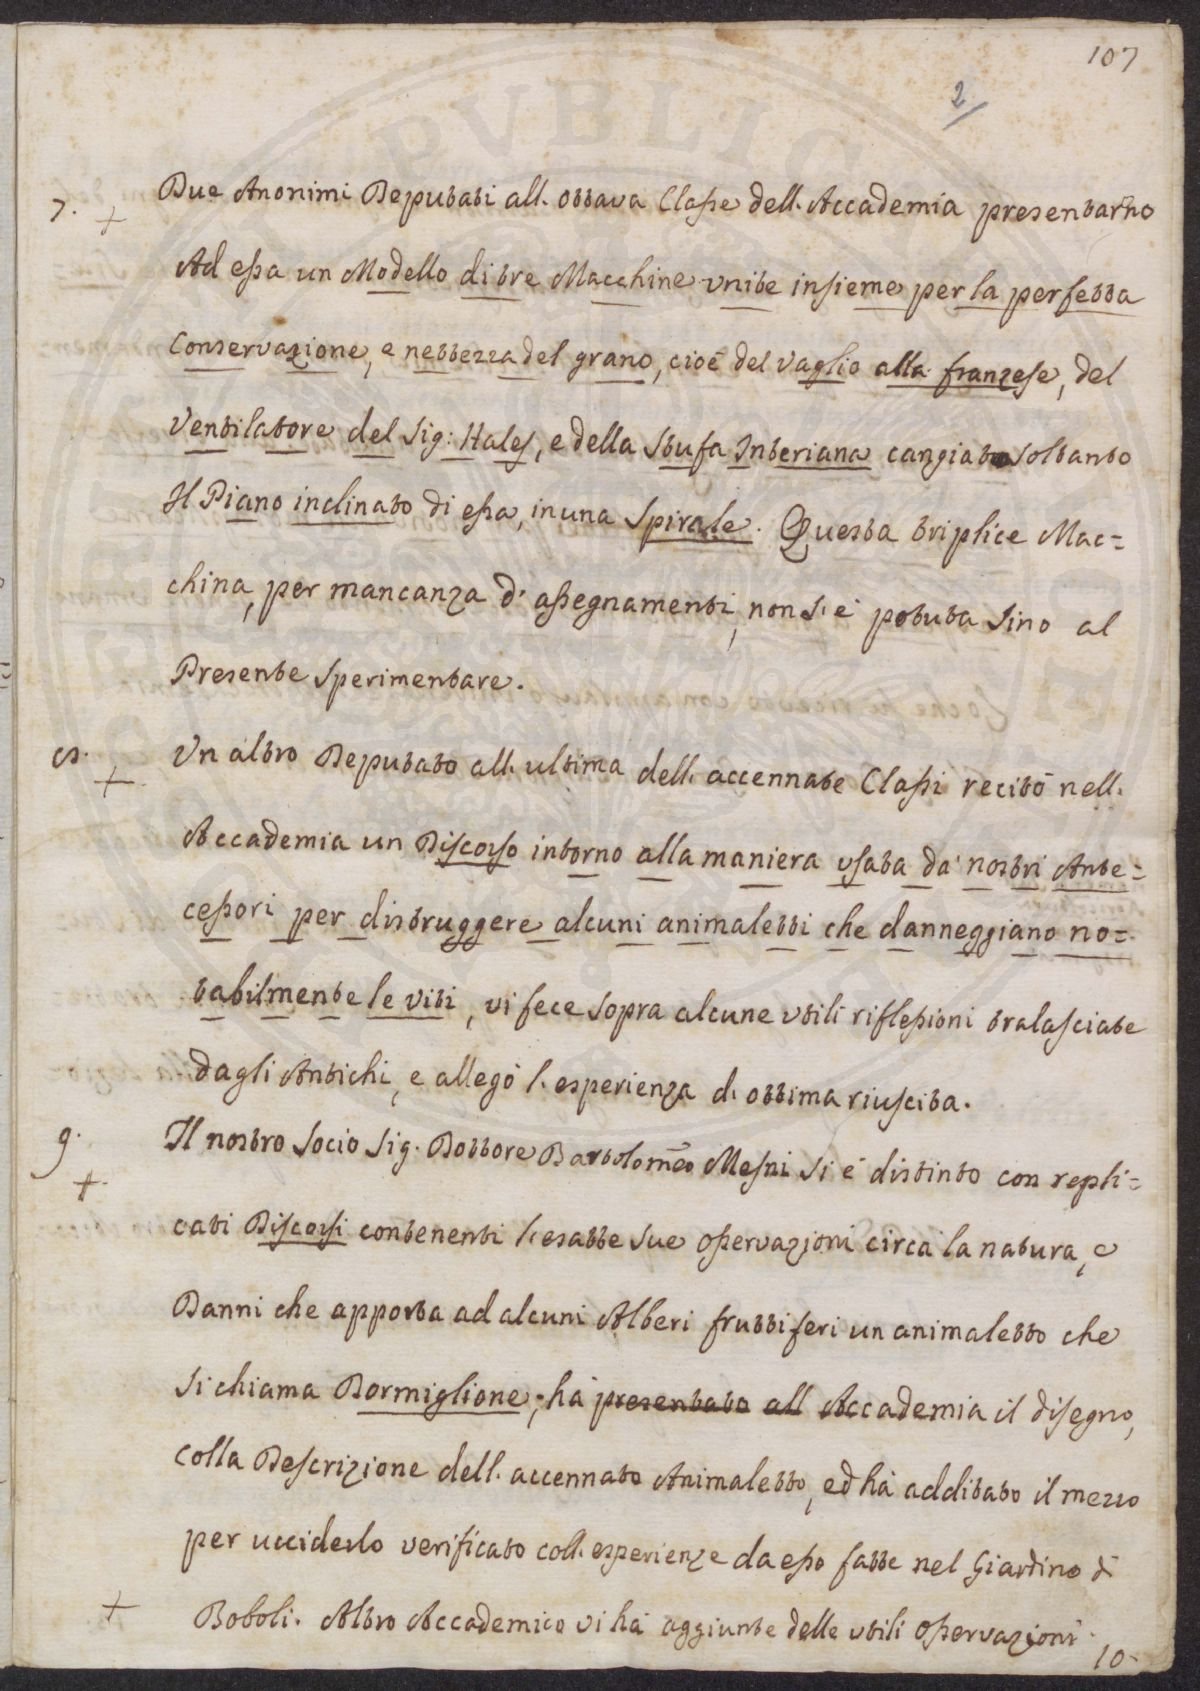 107
2
7. + Due Anonimi Deputati all. ottava Classe dell. Accademia presentarno
Ad essa un Modello di tre Macchine unite insieme per la perfetta
Conservazione, e nettezza del grano, cioè del Vaglio alla franzese, del
Ventilatore del Sig: Hales, e della Stufa Interiana cangiato soltanto
Il Piano inclinato di essa, in una Spirale. Questa triplice Mac=
china, per mancanza d' assegnamenti, non si è potuta sino al
Presente sperimentare.
8. + Un altro Deputato all. ultima dell. accennate Classi recitò nell.
Accademia un Discorso intorno alla maniera usata da' nostri Ante=
cessori per distruggere alcuni animaletti che danneggiano no=
tabilmente le viti, vi fece sopra alcune utili riflessioni tralasciate
dagli Antichi, e allegò l. esperienza d. ottima riuscita.
9. + Il nostro Socio Sig. Dottore Bartolomeo Mesni si è distinto con repli=
cati Discorsi contenenti l. esatte sue osservazioni circa la natura, e
Danni che apporta ad alcuni Alberi fruttiferi un animaletto che
si chiama Dormiglione; ha presentato all Accademia il disegno,
colla Descrizione dell. accennato Animaletto, ed ha additato il mezzo
per ucciderlo verificato coll. esperienze da esso fatte nel Giardino di
+ Boboli. Altro Accademico vi ha aggiunte delle utili osservazioni.
10.
PVBLIC